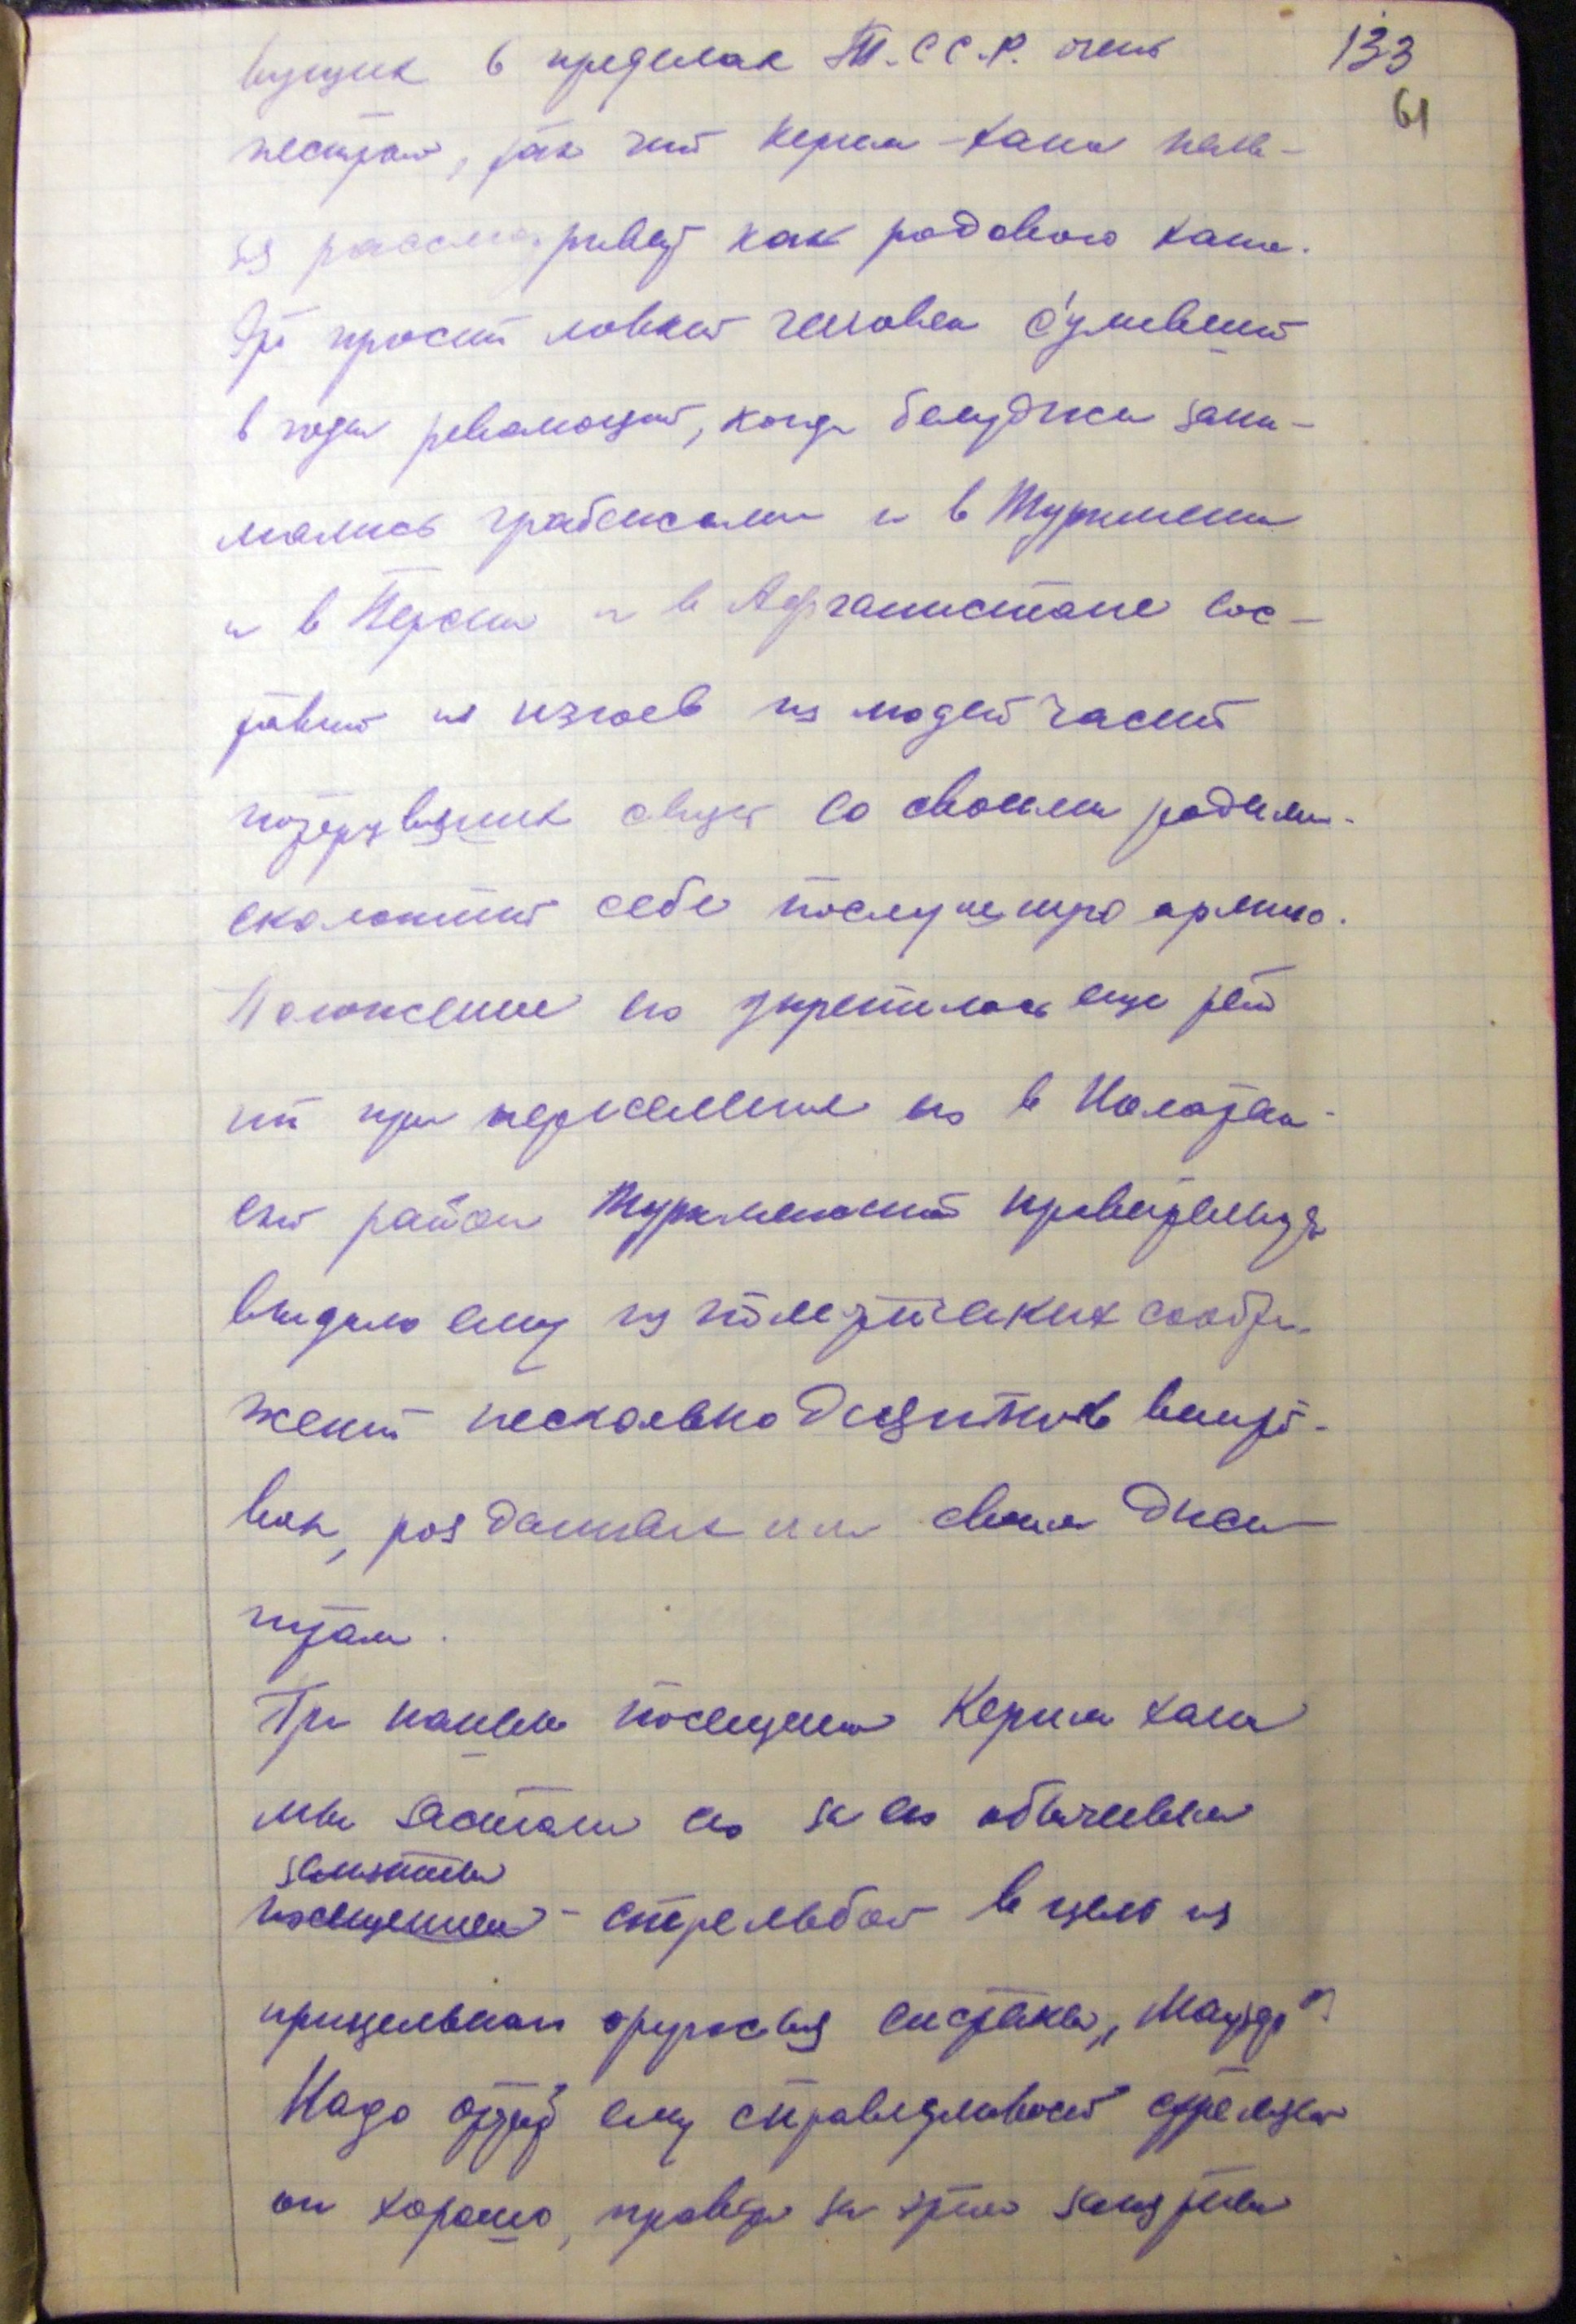 вущих в пределах Т.С.С.Р. очень
133
61
пестрое, так что Керим-хана нель-
зя рассматривать как родового хана.
Это просто ловкий человек сумевший
в годы революции, когда белуджи зани-
мались грабежами и в Туркмении
и в Персии и в Афганистане сос-
тавить из изгоев из людей часто
потерявших связь со своими родами
сколотить себе послушную армию.
Положение его укрепилось еще тем
что при переселении его в Иолотан-
ский район Туркменское правительство
выдало ему из политических сообра-
жений несколько десятков винто-
вок, розданных им своим джи-
гитам.
При нашем посещении Керим хана
мы застали его за его обычным
занятием
посещением - стрельбой в цель из
прицельного оружья системы „Маузер"
Надо отдать ему справедливость стреляет
он хорошо, правда за этим занятием